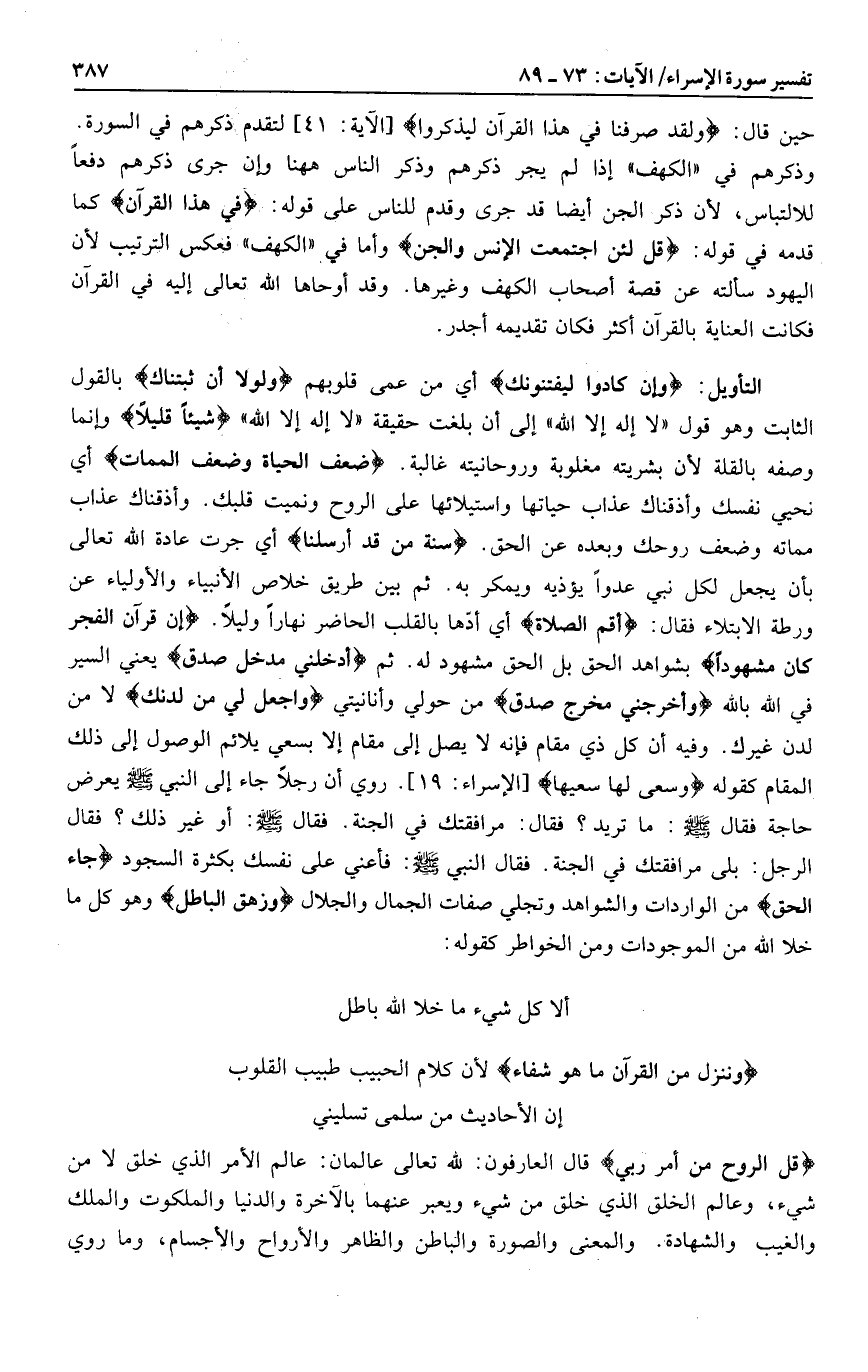 تفسير سورة الإسراء/ الآيات: ٧٣ - ٨٩
٣٨٧
حين قال: ﴿ولقد صرفنا في هذا القرآن ليذكروا﴾ [الآية: ٤١] لتقدم ذكرهم في السورة.
وذكرهم في «الكهف» إذا لم يجر ذكرهم وذكر الناس ههنا وإن جرى ذكرهم دفعاً
للالتباس، لأن ذكر الجن أيضا قد جرى وقدم للناس على قوله: ﴿في هذا القرآن﴾ كما
قدمه في قوله: ﴿قل لئن اجتمعت الإنس والجن﴾ وأما في «الكهف» فعكس الترتيب لأن
اليهود سألته عن قصة أصحاب الكهف وغيرها. وقد أوحاها الله تعالى إليه في القرآن
فكانت العناية بالقرآن أكثر فكان تقديمه أجدر.
التأويل: ﴿وإن كادوا ليفتنونك﴾ أي من عمى قلوبهم ﴿ولولا أن ثبتناك﴾ بالقول
الثابت وهو قول «لا إله إلا الله» إلى أن بلغت حقيقة «لا إله إلا الله» ﴿شيئاً قليلاً﴾ وإنما
وصفه بالقلة لأن بشريته مغلوبة وروحانيته غالبة. ﴿ضعف الحياة وضعف الممات﴾ أي
نحيي نفسك وأذقناك عذاب حياتها واستيلائها على الروح ونميت قلبك. وأذقناك عذاب
مماته وضعف روحك وبعده عن الحق. ﴿سنة من قد أرسلنا﴾ أي جرت عادة الله تعالى
بأن يجعل لكل نبي عدواً يؤذيه ويمكر به. ثم بين طريق خلاص الأنبياء والأولياء عن
ورطة الابتلاء فقال: ﴿أقم الصلاة﴾ أي أدّها بالقلب الحاضر نهاراً وليلاً. ﴿إن قرآن الفجر
كان مشهوداً﴾ بشواهد الحق بل الحق مشهود له. ثم ﴿أدخلني مدخل صدق﴾ يعني السير
في الله بالله ﴿وأخرجني مخرج صدق﴾ من حولي وأنانيتي ﴿واجعل لي من لدنك﴾ لا من
لدن غيرك. وفيه أن كل ذي مقام فإنه لا يصل إلى مقام إلا بسعي يلائم الوصول إلى ذلك
المقام كقوله ﴿وسعى لها سعيها﴾ [الإسراء: ١٩]. روي أن رجلاً جاء إلى النبي ﷺ يعرض
حاجة فقال ﷺ : ما تريد؟ فقال: مرافقتك في الجنة. فقال ﷺ: أو غير ذلك؟ فقال
الرجل: بلى مرافقتك في الجنة. فقال النبي ﷺ: فأعني على نفسك بكثرة السجود ﴿جاء
الحق﴾ من الواردات والشواهد وتجلي صفات الجمال والجلال ﴿وزهق الباطل﴾ وهو كل ما
خلا الله من الموجودات ومن الخواطر كقوله:
ألا كل شيء ما خلا الله باطل
﴿وننزل من القرآن ما هو شفاء﴾ لأن كلام الحبيب طبيب القلوب
إن الأحاديث من سلمى تسليني
﴿قل الروح من أمر ربي﴾ قال العارفون: لله تعالى عالمان: عالم الأمر الذي خلق لا من
شيء، وعالم الخلق الذي خلق من شيء ويعبر عنهما بالآخرة والدنيا والملكوت والملك
والغيب والشهادة. والمعنى والصورة والباطن والظاهر والأرواح والأجسام، وما روي